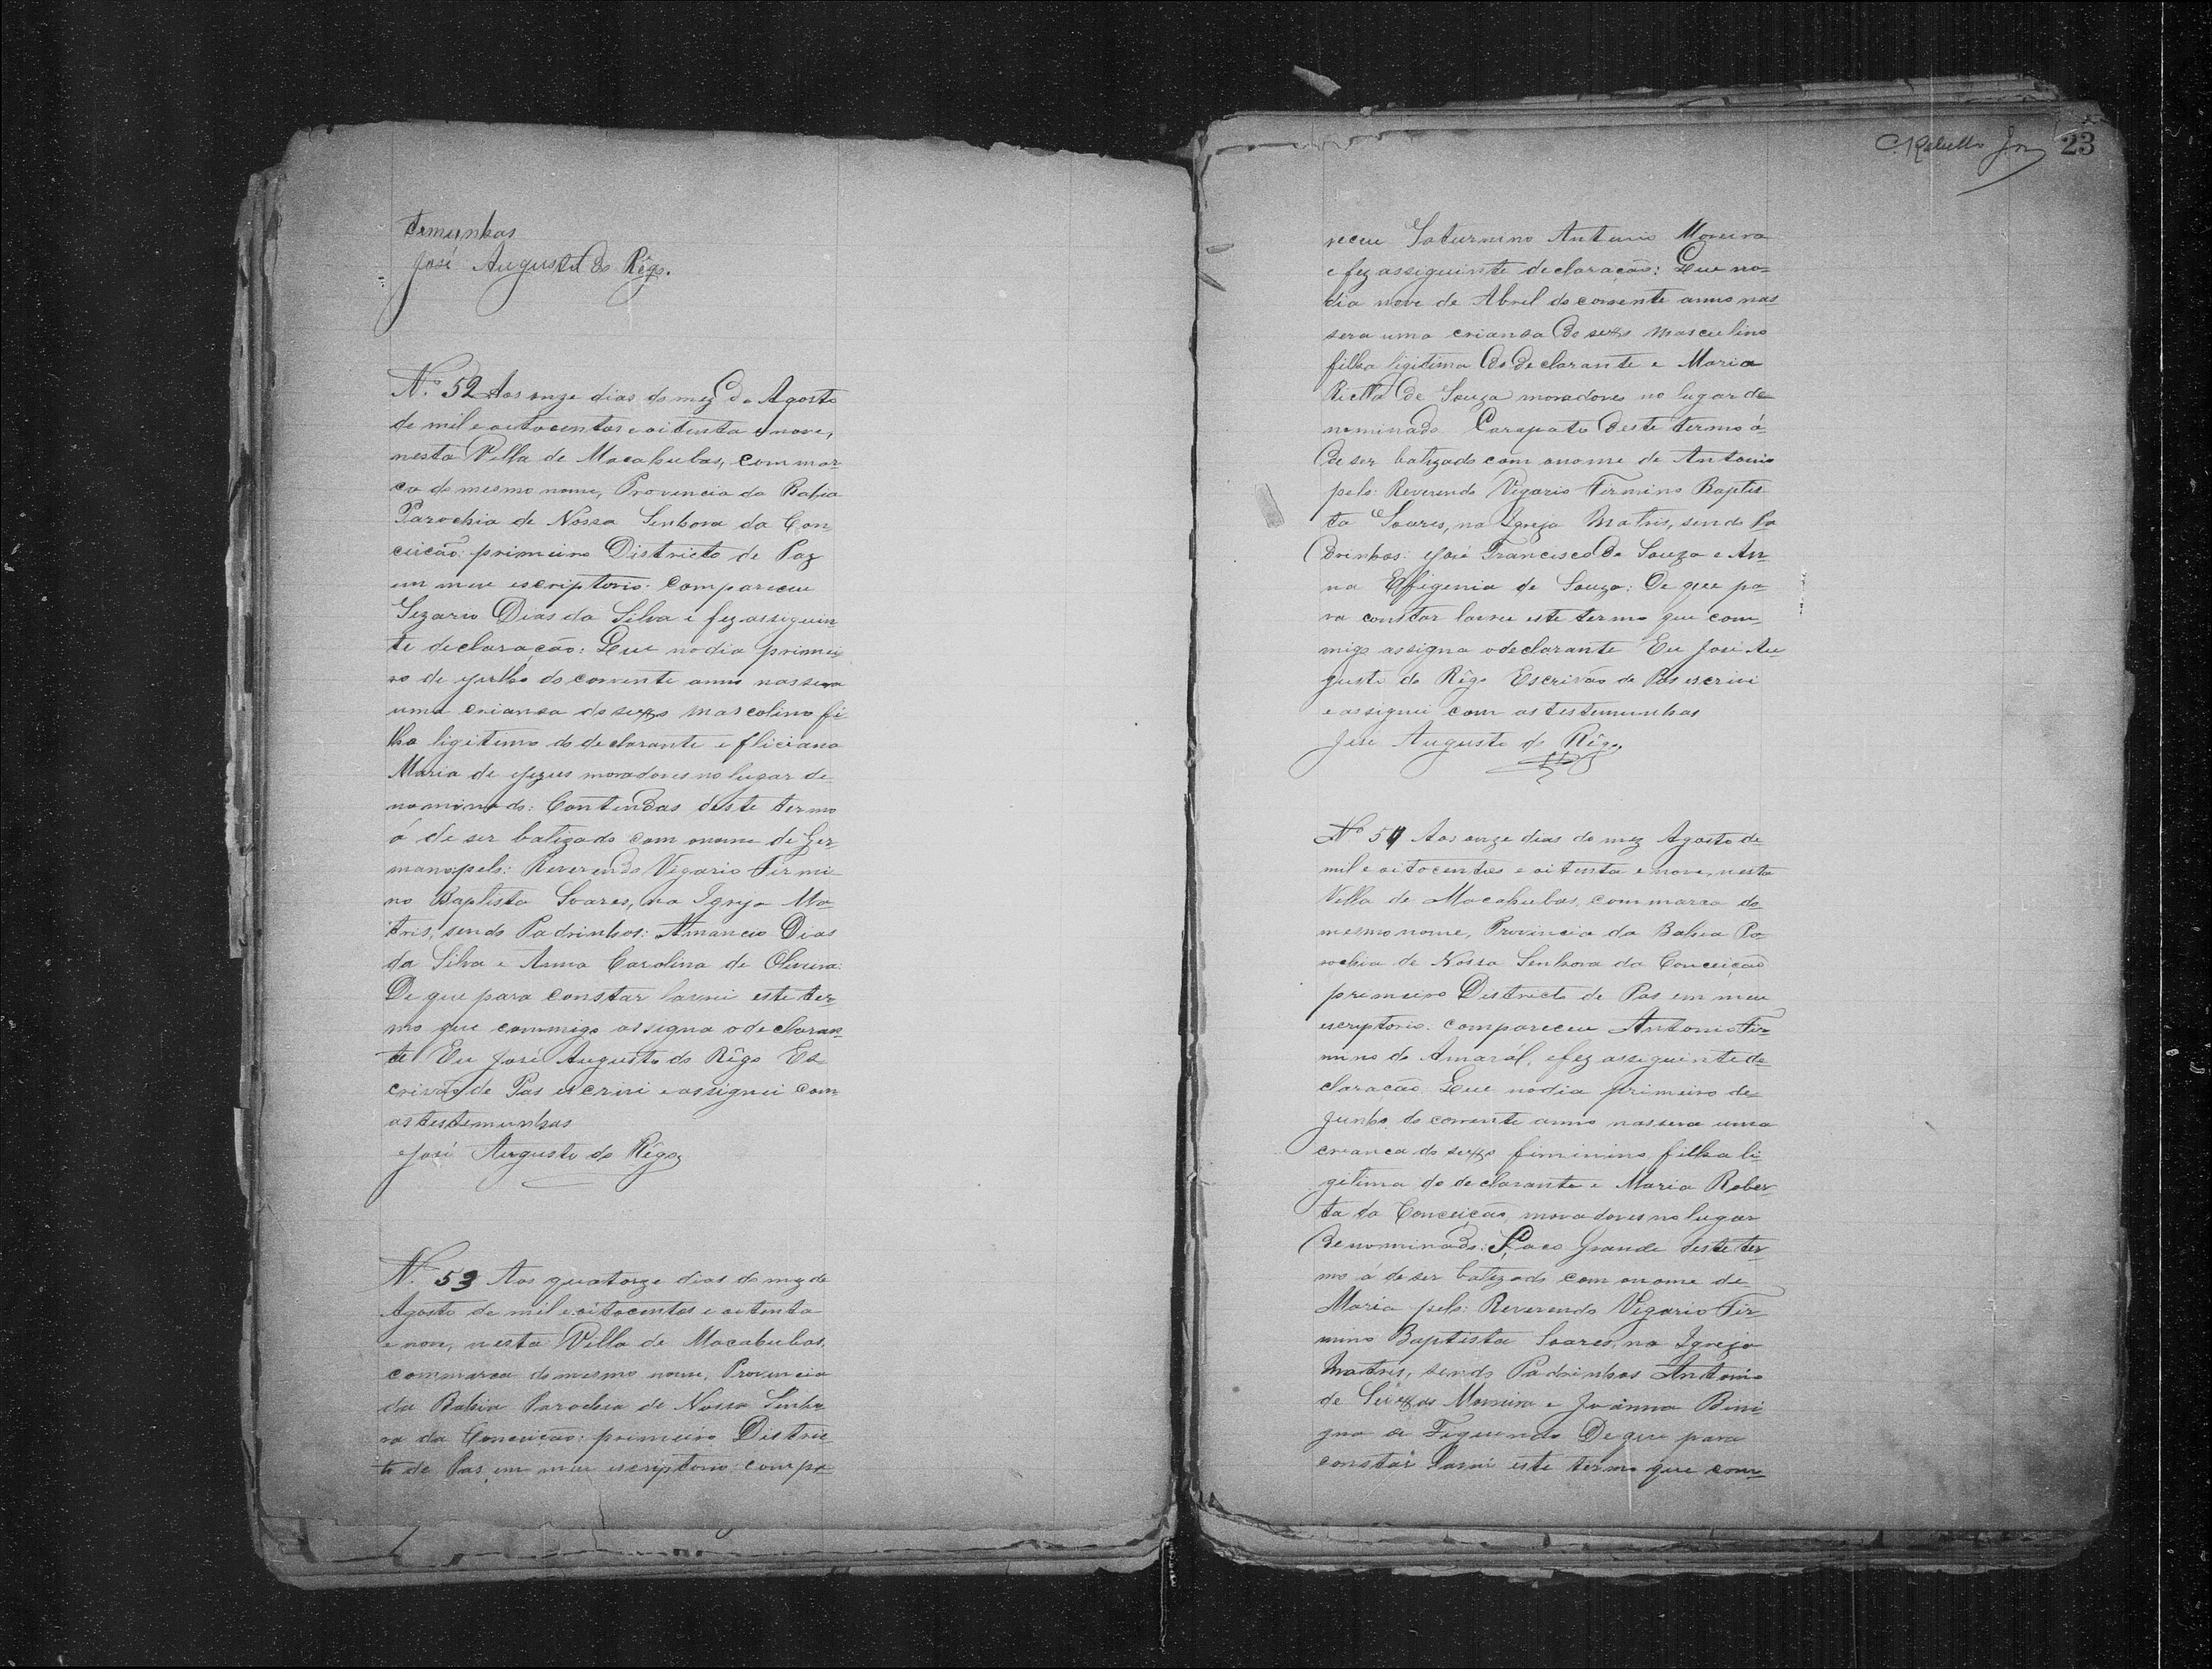 temunhas
José Augusto do Rêgo.
Nº 52 Aos onze dias do mez de Agosto
de mil e oitocentos e oitenta e nove,
nesta Villa de Macahubas, commar-
ca do mesmo nome, Provincia da Bahia
Parochia de Nossa Senhora da Con-
ceicão: primeiro Districto de Paz
em meu escriptorio: compareceu
Sezario Dias da Silva e fez asseguin-
te declaração: Que no dia primei-
ro de Julho do corrente anno nassera
uma criansa do sexso mascolino fi-
lho ligitimo do declarante e Fliciana
Maria de Jezus moradores no lugar de-
nominado: Contendas deste termo
á de ser batizado com onome de Ger-
mano pelo: Reverendo Vigario Firmi-
no Baptista Soares, na Igreja Ma-
tris, sendo Padrinhos: Amancio Dias
da Silva e Anna Carolina de Oliveira:
De que para constar lavrei este ter-
mo que commigo assigna o declaran-
te Eu José Augusto do Rêgo Es-
crivão de Pas escrivi e assignei com
as testemunhas
José Augusto do Rêgo
Nº 53 Aos quatorze dias do mez de
Agosto de mil e oitocentos e oitenta
e nove, nesta Villa de Macahubas,
commarca do mesmo nome, Provincia
da Bahia Parochia de Nossa Senho-
ra da Conceição: primeiro Distric-
to de Pas em meu escriptorio: compa-
C. Rabello Jor 23
receu Saturnino Antonio Moreira
e fez asseguinte declaração: Que no-
dia nove de Abril do corrente anno nas
sera uma criansa do sexso masculino
filha ligitima do declarante e Maria
Ricta de Souza moradores no lugar de-
nominado Carapato deste termo á-
de ser batizado com onome de Antonio
pelo: Reverendo Vigario Firmino Baptis-
ta Soares, na Igreja Matris, sendo Pa
drinhos: José Francisco de Souza e An-
na Effigenia de Souza: De que pa-
ra constar lavrei este termo que com-
migo assigna o declarante Eu José Au-
gusto do Rêgo Escrivão de Pas escrivi
e assignei com as testemunhas
José Augusto do Rêgo
Nº 54 Aos onze dias do mez Agosto de
mil e oitocentos e oitenta e nove, nesta
Villa de Macahubas, commarca do
mesmo nome, Provincia da Bahia Pa-
rochia de Nossa Senhora da Conceição
primeiro Districto de Pas em meu
escriptorio: compareceu Antonio Fir-
mino do Amarál, e fez asseguinte de-
claração Que no dia primeiro de-
Junho do corrente anno nassera uma
crianca do sexso fiminino, filha li-
gitima do declarante e Maria Rober-
ta da Conceição, moradores no lugar
denominado: Saco Grande deste ter-
mo á de ser batizado com onome de
Maria pelo: Reverendo Vigario Fir-
mino Baptista Soares, na Igreja
Matris, sendo Padrinhos Antonio
de Seixsas Moreira e Joánna Bini-
gna de Figueredo De que para
constar lavrei este termo que com-